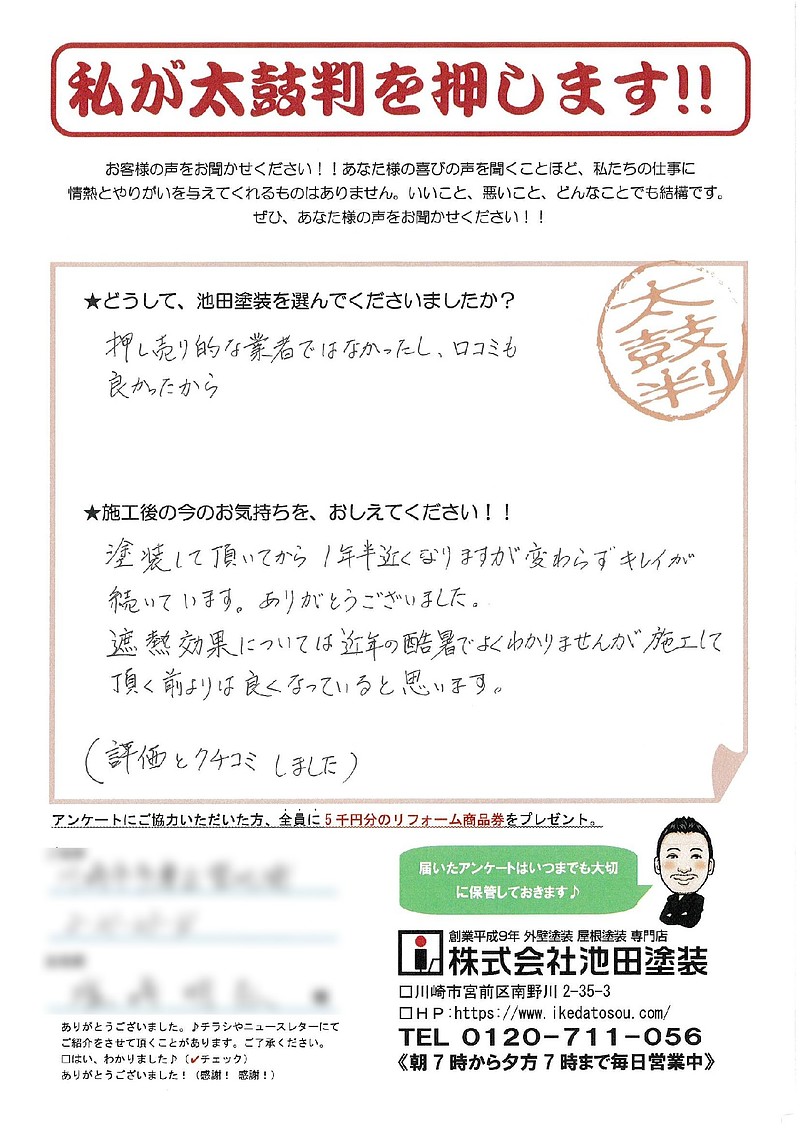 私が太鼓判を押します!!
お客様の声をお聞かせください！！あなた様の喜びの声を聞くことほど、私たちの仕事に
情熱とやりがいを与えてくれるものはありません。いいこと、悪いこと、どんなことでも結構です。
ぜひ、あなた様の声をお聞かせください！！
★どうして、池田塗装を選んでくださいましたか？
太鼓判
押し売り的な業者ではなかったし、口コミも
良かったから
★施工後の今のお気持ちを、おしえてください！！
塗装して頂いてから1年半近くなりますが変わらずキレイが
続いています。ありがとうございました。
遮熱効果については近年の酷暑でよくわかりませんが施工して
頂く前よりは良くなっていると思います。
(評価とクチコミしました)
アンケートにご協力いただいた方、全員に5千円分のリフォーム商品券をプレゼント。
届いたアンケートはいつまでも大切
に保管しておきます♪
創業平成9年 外壁塗装 屋根塗装 専門店
株式会社池田塗装
□川崎市宮前区南野川2-35-3
□ＨＰ:https://www.ikedatosou.com/
TEL 0120-711-056
《朝7時から夕方7時まで毎日営業中》
ありがとうございました。♪チラシやニュースレターにて
ご紹介をさせて頂くことがあります。ご了承ください。
□はい、わかりました♪（✔チェック）
ありがとうございました！（感謝！感謝！）